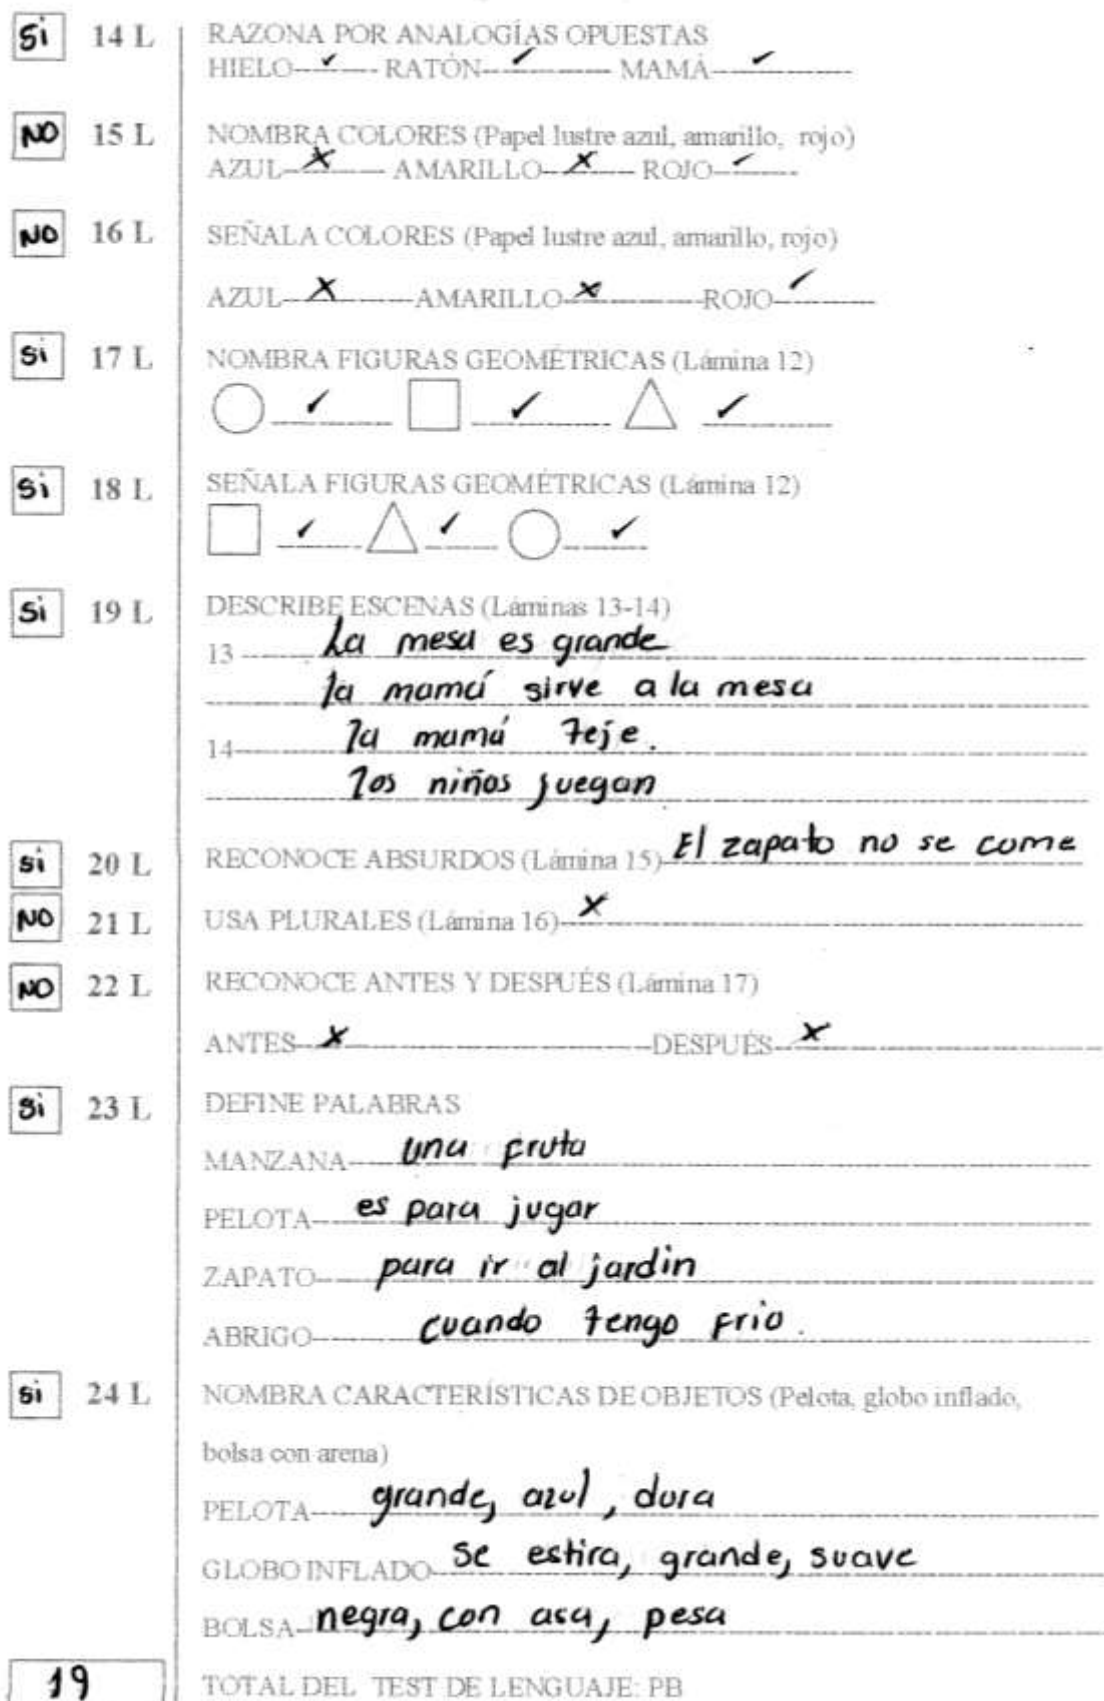 Si 14 L RAZONA POR ANALOGÍAS OPUESTAS
HIELO ✓ RATÓN ✓ MAMÁ ✓
NO 15 L NOMBRA COLORES (Papel lustre azul, amarillo, rojo)
AZUL X AMARILLO X ROJO ✓
NO 16 L SEÑALA COLORES (Papel lustre azul, amarillo, rojo)
AZUL X AMARILLO X ROJO ✓
Si 17 L NOMBRA FIGURAS GEOMÉTRICAS (Lámina 12)
✓ ✓ ✓
Si 18 L SEÑALA FIGURAS GEOMÉTRICAS (Lámina 12)
✓ ✓ ✓
Si 19 L DESCRIBE ESCENAS (Láminas 13-14)
13 La mesa es grande
la mamá sirve a la mesa
14 la mamá teje.
los niños juegan
si 20 L RECONOCE ABSURDOS (Lámina 15) El zapato no se come
NO 21 L USA PLURALES (Lámina 16) X
NO 22 L RECONOCE ANTES Y DESPUÉS (Lámina 17)
ANTES X DESPUÉS X
Si 23 L DEFINE PALABRAS
MANZANA una fruta
PELOTA es para jugar
ZAPATO para ir al jardin
ABRIGO cuando tengo frio.
si 24 L NOMBRA CARACTERÍSTICAS DE OBJETOS (Pelota, globo inflado,
bolsa con arena)
PELOTA grande, azul, dura
GLOBO INFLADO se estira, grande, suave
BOLSA negra, con asa, pesa
19 TOTAL DEL TEST DE LENGUAJE: PB